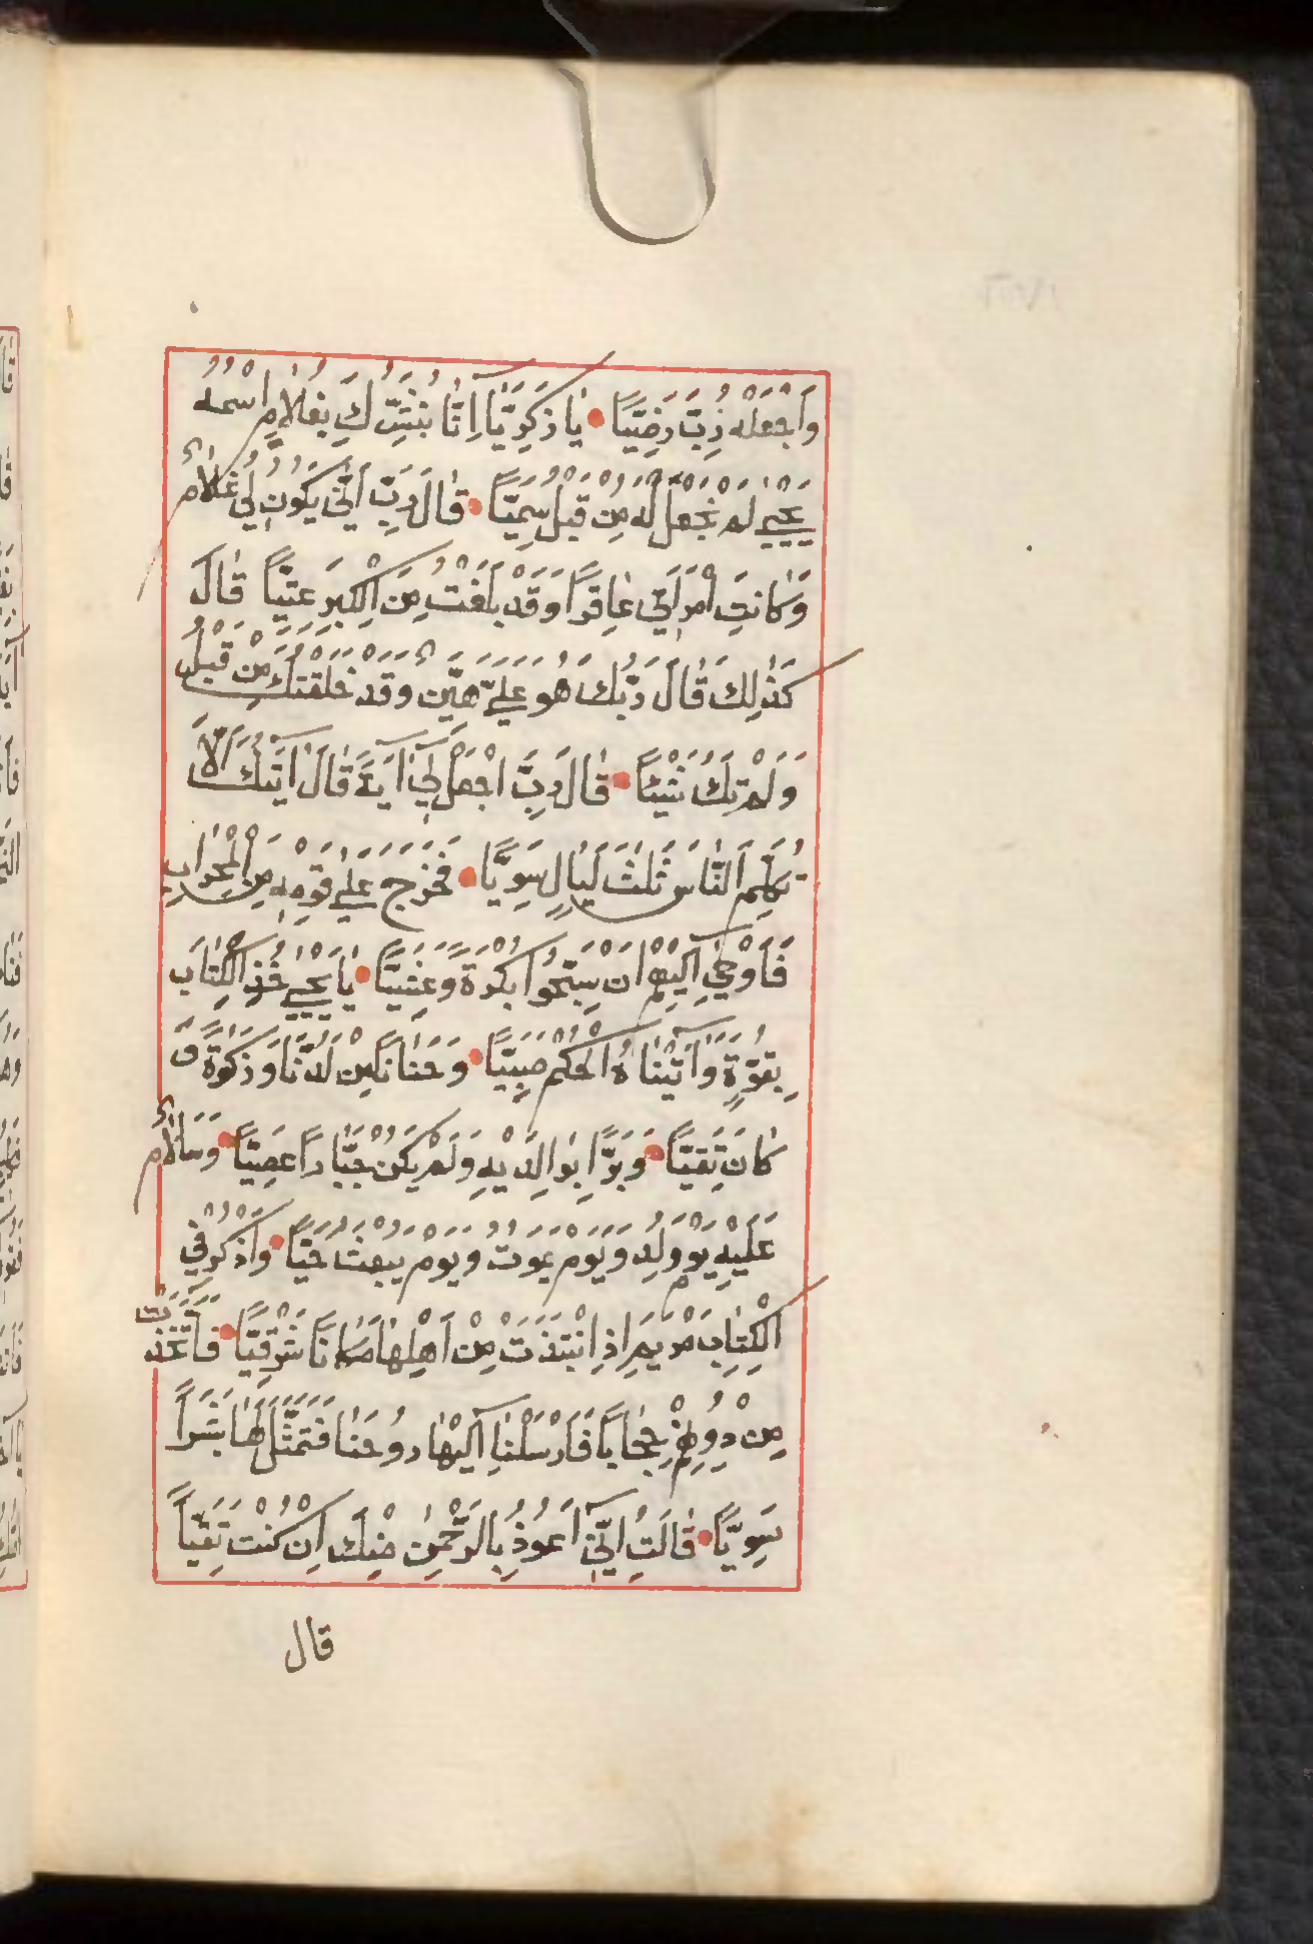 وَاجْعَلْه رَبِّ رَضِيًّا يَا زَكَرِيَّا اِنَّا نُبَشِّرُكَ بِغُلَامٍ اسْمُهُ
يَحْيٰي لَمْ نَجْعَلْ لَهُ مِنْ قَبْلُ سَمِيًّا قَالَ رَبِّ اَنّٰي يَكُونُ لِي غُلَامٌ
وَكَانَتِ امْرَاَتِي عَاقِرًا وَقَدْ بَلَغْتُ مِنَ الْكِبَرِ عِتِيًّا قَالَ
كَذٰلِكَ قَالَ رَبُّكَ هُوَ عَلَيَّ هَيِّنٌ وَقَدْ خَلَقْتُكَ مِنْ قَبْلُ
وَلَمْ تَكُ شَيْئًا قَالَ رَبِّ اجْعَلْ لِي اٰيَةً قَالَ اٰيَتُكَ اَلَّا
تُكَلِّمَ النَّاسَ ثَلٰثَ لَيَالٍ سَوِيًّا فَخَرَجَ عَلٰي قَوْمِهِ مِنَ الْمِحْرَابِ
فَاَوْحٰي اِلَيْهِمْ اَنْ سَبِّحُوا بُكْرَةً وَعَشِيًّا يَا يَحْيٰي خُذِ الْكِتَابَ
بِقُوَّةٍ وَاٰتَيْنَاهُ الْحُكْمَ صَبِيًّا وَحَنَانًا مِنْ لَدُنَّا وَزَكٰوةً وَ
كَانَ تَقِيًّا وَبَرًّا بِوَالِدَيْهِ وَلَمْ يَكُنْ جَبَّارًا عَصِيًّا وَسَلَامٌ
عَلَيْهِ يَوْمَ وُلِدَ وَيَوْمَ يَمُوتُ وَيَوْمَ يُبْعَثُ حَيًّا وَاذْكُرْ فِي
الْكِتَابِ مَرْيَمَ اِذِ انْتَبَذَتْ مِنْ اَهْلِهَا مَكَانًا شَرْقِيًّا فَاتَّخَذَتْ
مِنْ دُونِهِمْ حِجَابًا فَاَرْسَلْنَا اِلَيْهَا رُوحَنَا فَتَمَثَّلَ لَهَا بَشَرًا
سَوِيًّا قَالَتْ اِنِّي اَعُوذُ بِالرَّحْمٰنِ مِنْكَ اِنْ كُنْتَ تَقِيًّا
قال